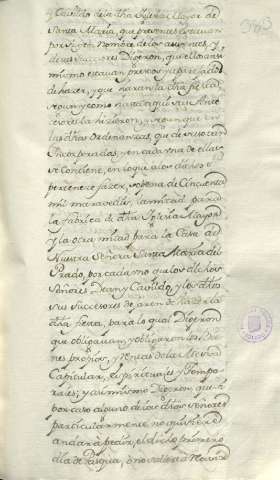 y Cavildo de la dha Iglesia Mayor de
Santa Maria, que presentes estavan
por si, y en nombre de los ausentes, y
de sus subcesores Dixeron, que ellos ansi
mismo estavan prestos y aparejados
de hazer, y que haran la dha fiesta
segun y como hasta aqui sus Ante
cesores la hizieron, y segun que en
las dhas Ordenanzas, que de suso ban
Encorporadas, y en cada una de ellas
se contiene, en lo que a los dhos
pertenece fazer, so pena de Cinquenta
mil maravedis, la mitad para
la fabrica de dha Iglesia Mayor
y la otra mitad para la Casa de
Nuestra Señora Santa Maria del
Prado, por cada uno que los dichos
Señores Dean y Cavildo, y los dhos
sus Successores dexaren de hazer la
dha fiesta, para lo qual Dixeron
que obligavan y obligaron los Bie
nes propios, y Rentas de la Messa
Capitular, espirituales y tempo
rales; y asimismo Dixeron, que si
por caso alguno de los dhos Señores
particularmente no quisiere
andar a pedir, el dicho primero
dia de Pasqua, o no saliere